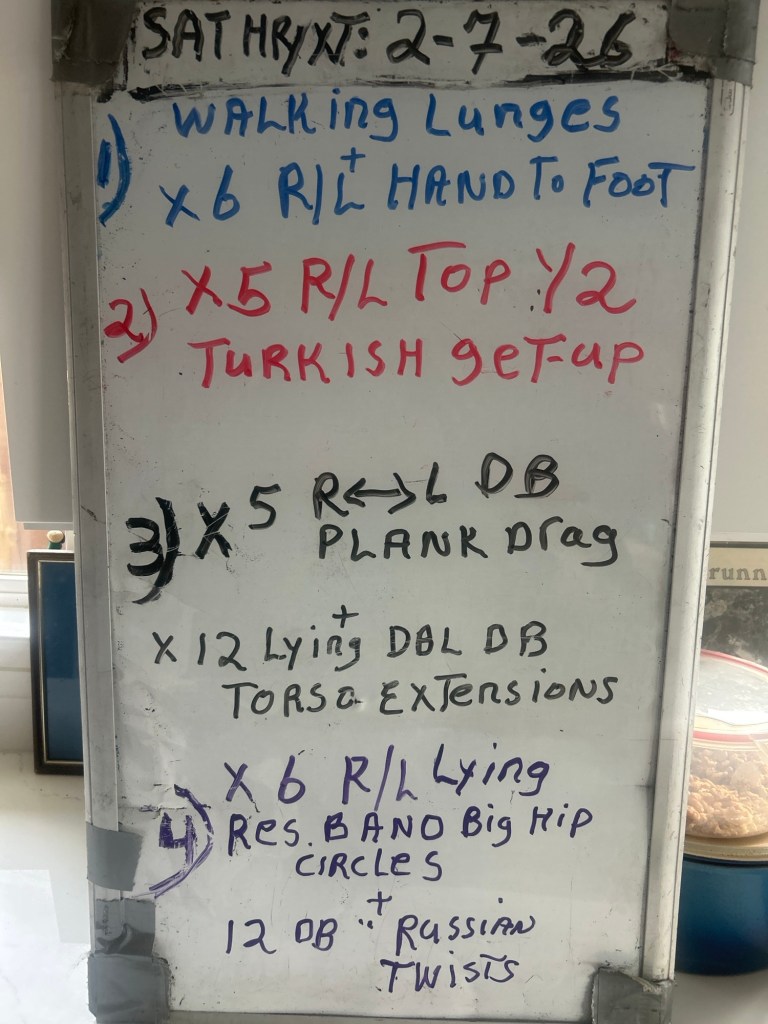 SAT HR/XT: 2-7-26
1) WALKing Lunges
+
x6 R/L HAND To FOOT
2) x5 R/L Top 1/2
TURKISH geT-up
3) x5 R↔L DB
PLANK Drag
+
x 12 Lying DBL DB
TORSO EXTensioNS
4) x 6 R/L Lying
Res. BAND Big Hip
CIRCLES
+
12 DB " RussiAN
TWISTS
runn